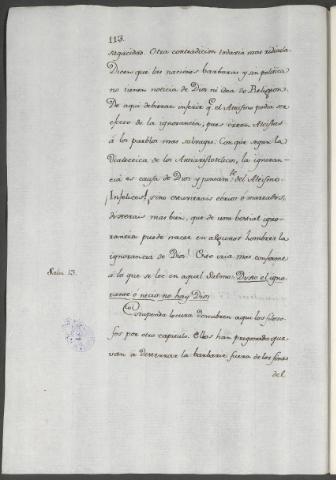 113.
sagacidad. Otra contradicion todavia mas ridicula.
Dicen que las naciones barbaras y sin politica
no tienen noticia de Dios ni idea de Religion.
De aqui debieran inferir q.e el Ateismo podia ser
efecto de la ignorancia, pues creen Ateistas
à los pueblos mas salvages. Con que segun la
Dialectica de los Antiaristotelicos, la ignoran-
cia es causa de Dios y juntam.te del Ateismo.
¡Infelices! si no estuvierais ebrios o
dixerais mas bien, que de una bestial igno-
rancia puede nacer en algunos hombres la
ignorancia de Dios! Esto seria mas conforme
à lo que se lee en aquel Salmo: Dixo el igno-
Salm. 13.
rante o necio no hay Dios
Estupenda locura descubren aqui los filoso-
fos por otro capitulo. Ellos han pregonado que
van à desterrar la barbarie fuera de los fines
del